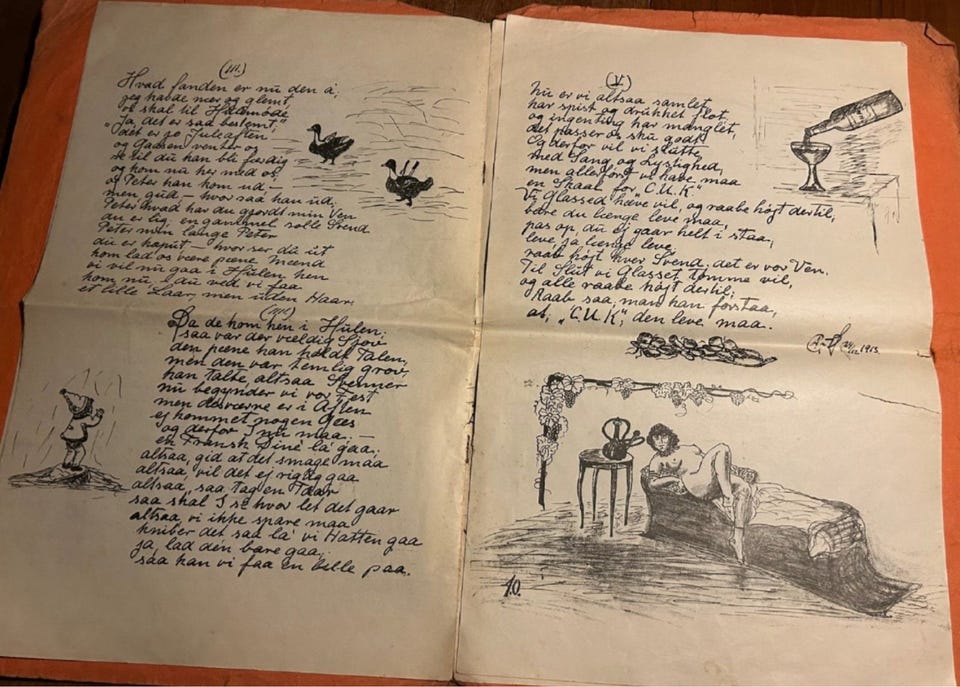 (III.)
Hvad fanden er nu den á;
jeg havde nær og glemt,
os skal til Hulemøde
"Ja, det er saa bestemt,"
"det er jo Juleaften
og Gaasen venter og
se til du han bli færdig
og kom nu her med os,
og Peter han kom ud –
men gud, – hvor saa han ud.
Peter hvad har du gjordt min Ven
du er lig, en gammel Svend
Peter min lange Peter
du er kaput – hvor ser du út
kom lad os være pæne Mænd
vi vil nu gaa i Hulen hen
kom nu, du ved vi faa
et lille Laar, men uden Haar.
Da de kom hen i Hulen;
saa var der vældig Sjov
den pæne han holdt Talen,
men den var temlig grov,
han talte, altsaa Svenner
nu begynder vi vor Fest
men desværre er i Aften
ej kommet nogen Gæs
og derfor I nu maa. –
en Fransk Diné la' gaa;
altsaa, gid at det smage maa
altsaa, vil det ej rigtig gaa
altsaa, saa tag en Taar
saa skal I se hvor let det gaar
altsaa, vi ikke spare maa
kniber det saa la' vi Hatten gaa
ja, lad den bare gaa,
saa kan vi faa en bille paa.
(V.)
Nu er vi altsaa samlet,
har spist og drukket flot,
og ingenting har manglet,
det passer os sku godt
Og derfor vil vi slutte
med Sang og Lystighed,
men allerførst vi have maa
en Skaal for "C.U.K"
Vi Glassed hæve vil, og raabe højt dertil,
bare du længe leve maa,
pas op, du ej gaar helt i staa,
leve, ja længe leve,
raab højt hver Svend. det er vor Ven.
Til Slut vi Glasset tømme vil,
og alle raabe højt dertil;
Raab saa, man kan forstaa,
at, "C.U.K", den leve maa.
24/12 1913.
J.O.